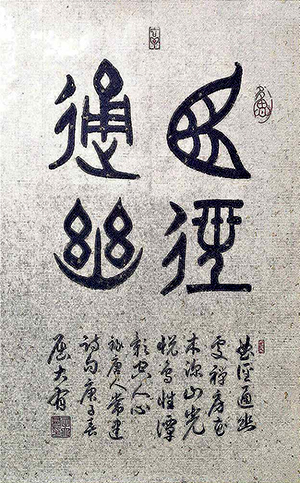 曲徑
通幽
曲徑通幽
處禪房花
木深山光
悅鳥性潭
影空人心
錄唐人常建
詩句庚子春
大有